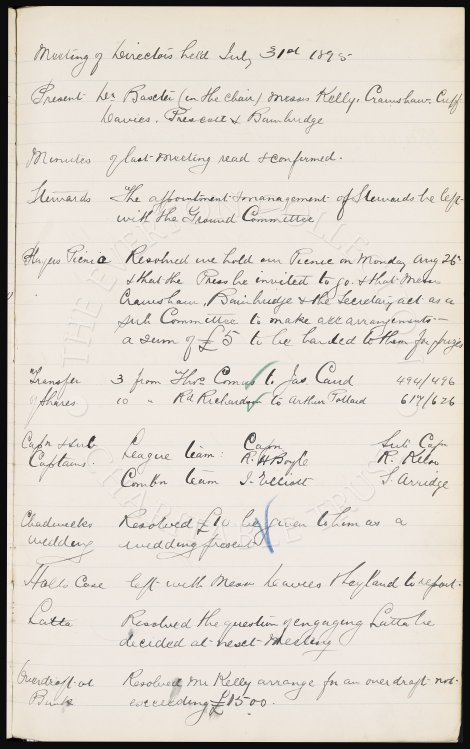 Meeting of Directors held July 31st 1895
Present Dr Baxter (in the chair) Messrs Kelly, Crawshaw, Cuff
Davies, Prescott & Bainbridge
Minutes of last meeting read & confirmed.
Stewards The appointment & management of Stewards be left
with the Ground Committee
Players Picnic Resolved we hold our Picnic on Monday Aug 26th
& that the Press be invited to go, & that Messrs
Crawshaw, Bainbridge & the Secretary act as a
sub Committee to make all arrangements —
a sum of £5 to be handed to them for prizes
Transfer 3 from Thos Comus to Jas. Caird 494/496
of Shares 10 " Rd Richardson to Arthur Pollard 617/626
Capn & sub League team: Capn Sub Capn
Captains. R. H Boyle R. Kelso
Combn team J. Elliott S. Arridge
Chadwicks Resolved £10 be given to him as a
wedding wedding present
Holts Case left with Messrs Davies & Leyland to report.
Latta Resolved the question of engaging Latta be
decided at next meeting
Overdraft at Resolved Mr Kelly arrange for an overdraft not
Bank exceeding £1500.
THE EVERTON
CHARITABLE TRUST